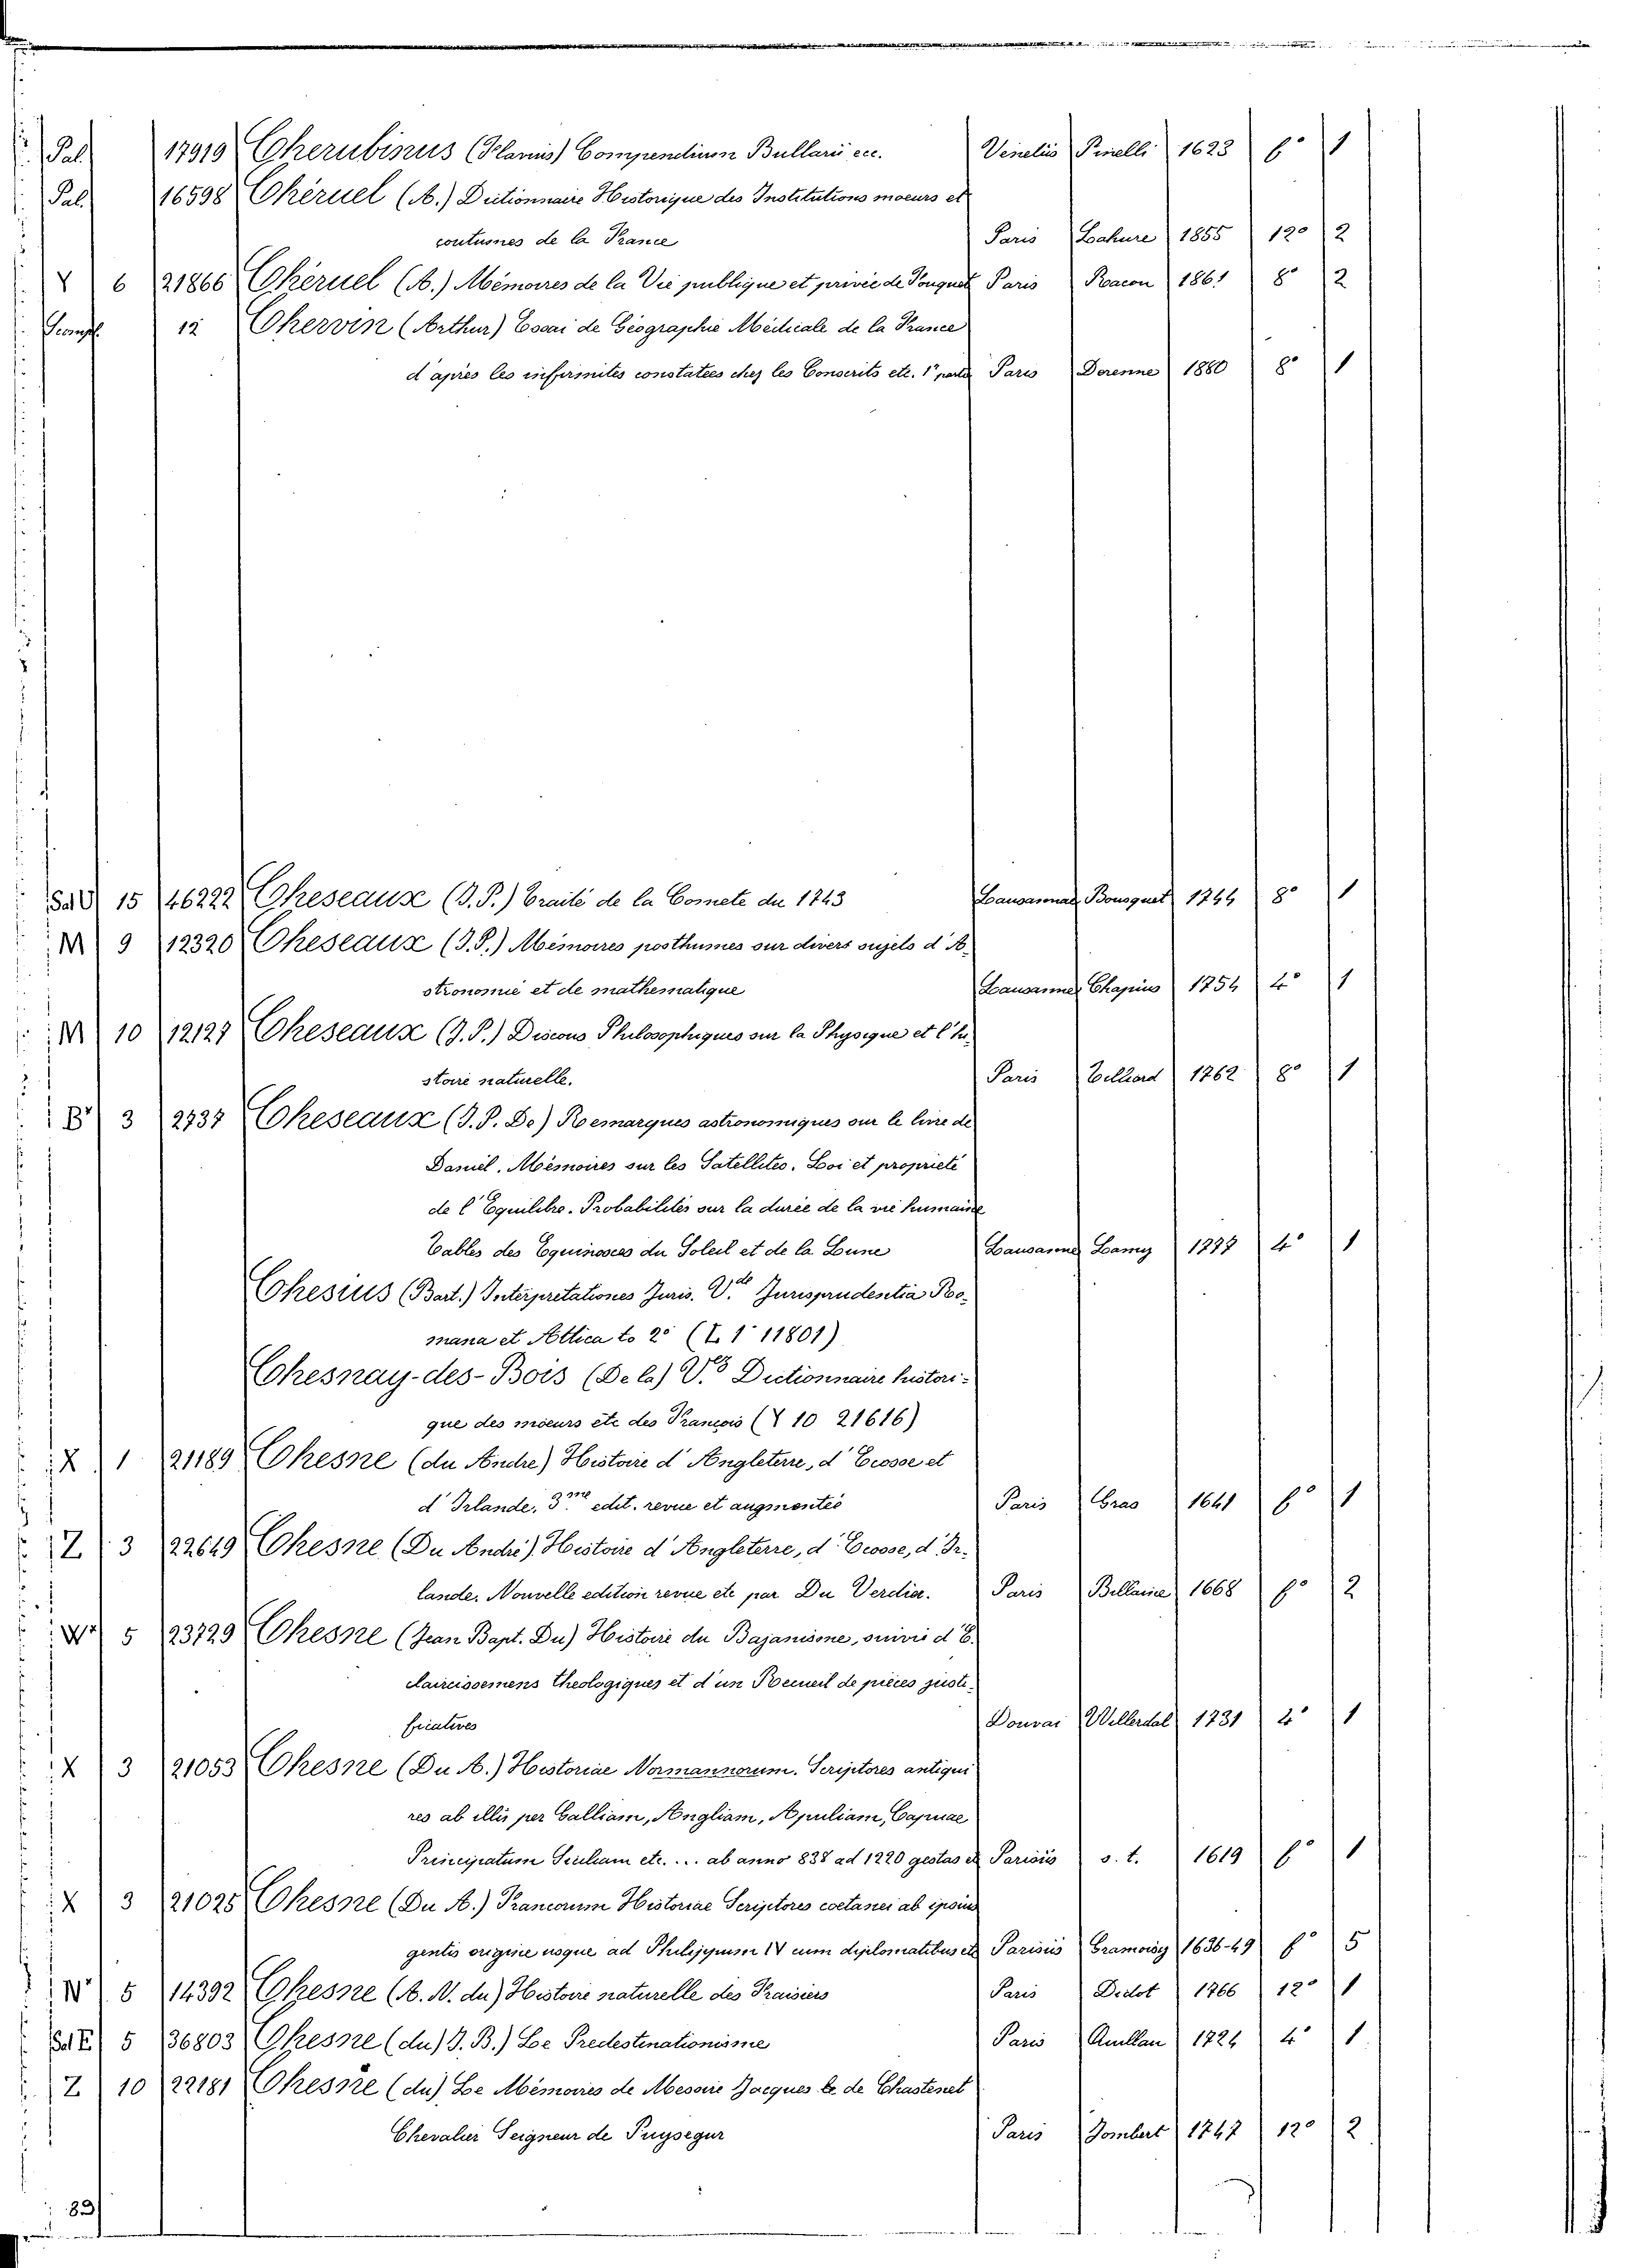 Pal. 17919 Cherubinus (Flavius) Compendium Bullarii ecc. Venetiis Pinelli 1623 f° 1
Pal. 16598 Chéruel (A.) Dictionnaire Historique des Institutions moeurs et
coutumes de la France Paris Lahure 1855 12° 2
Y 6 21866 Chéruel (A.) Mémoires de la Vie publique et privée de Fouquet Paris Racon 1861 8° 2
12 Chervin (Arthur) Essai de Géographie Médicale de la France
d'après les infirmités constatées chez les Conscrits etc. 1e partie Paris Derenne 1880 8° 1
Sal U 15 46222 Cheseaux (J.P.) Traité de la Comete du 1743 Lausannae Bousquet 1744 8° 1
M 9 12320 Cheseaux (J.P.) Mémoires posthumes sur divers sujets d'A-
stronomie et de mathematique Lausanne Chapius 1754 4° 1
M 10 12127 Cheseaux (J.P.) Discous Philosophiques sur la Physique et l'hi-
stoire naturelle. Paris Tilliard 1762 8° 1
B' 3 2737 Cheseaux (J.P. De) Remarques astronomiques sur le livre de
Daniel. Mémoires sur les Satellites. Loi et proprieté
de l'Equilibre. Probabilités sur la durée de la vie humaine
Tables des Equinoxes du Soleil et de la Lune Lausanne Lamy 1777 4° 1
Chesius (Bart.) Interpretationes Juris. V.de Jurisprudentia Ro-
mana et Attica to 2° (L 1° 11801)
Chesnay-des-Bois (De la) V.es Dictionnaire histori-
que des moeurs etc des Francois (Y 10 21616)
X 1 21189 Chesne (du Andre) Histoire d'Angleterre, d'Ecosse et
d'Irlande, 3.me edit. revue et augmentée Paris Gras 1641 f° 1
Z 3 22649 Chesne (Du André) Histoire d'Angleterre, d'Ecosse, d'Ir-
lande, Nouvelle edition revue etc par Du Verdier. Paris Billaine 1668 f° 2
W' 5 23729 Chesne (Jean Bapt. Du) Histoire du Bajanisme, suivie d'E-
claircissemens theologiques et d'un Recueil de pièces justi-
ficatives Douvai Willerdal 1731 4° 1
X 3 21053 Chesne (Du A.) Historiae Normannorum. Scriptores antiqui
res ab illis per Galliam, Angliam, Apuliam, Capuae
Principatum Siciliam etc. ... ab anno 838 ad 1220 gestas et Parisiis s. t. 1619 f° 1
X 3 21025 Chesne (Du A.) Francorum Historiae Scriptores coetanei ab ipsius
gentis origine usque ad Philippum IV cum diplomatibus etc Parisiis Cramoisy 1636-49 f° 5
N' 5 14392 Chesne (A. N. du) Histoire naturelle des Fraisiers Paris Didot 1766 12° 1
Sal E 5 36803 Chesne (du) J. B.) Le Predestinationisme Paris Amllan 1724 4° 1
Z 10 22181 Chesne (du) Le Mémoires de Messire Jacques te. de Chastenet
Chevalier Seigneur de Puysegur Paris Jombert 1747 12° 2
83